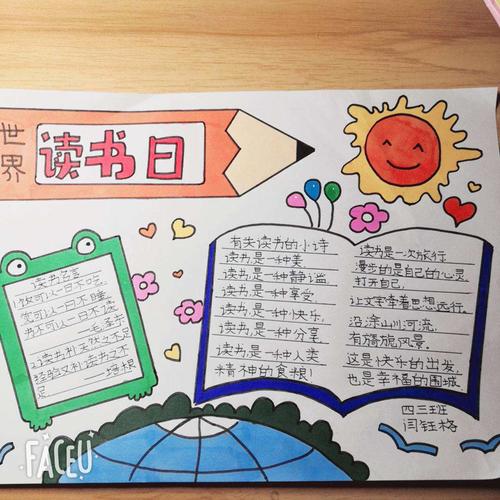 世界
读书日
读书名言
1.饭可以一日不吃,
觉可以一日不睡,
书不可以一日不读
——毛泽东
2.读书补天然之不足
经验又补读书之不
足
——培根
有关读书的小诗
读书,是一种美
读书,是一种静谧
读书,是一种享受
读书,是一种快乐,
读书,是一种分享,
读书,是一种人类
精神的食粮!
读书是一次旅行
漫步的是自己的心灵,
打开自己,
让文字牵着思想远行。
沿途山川河流,
有旖旎风景。
这是快乐的出发,
也是幸福的围城
四三班
闫钰格
FACEU